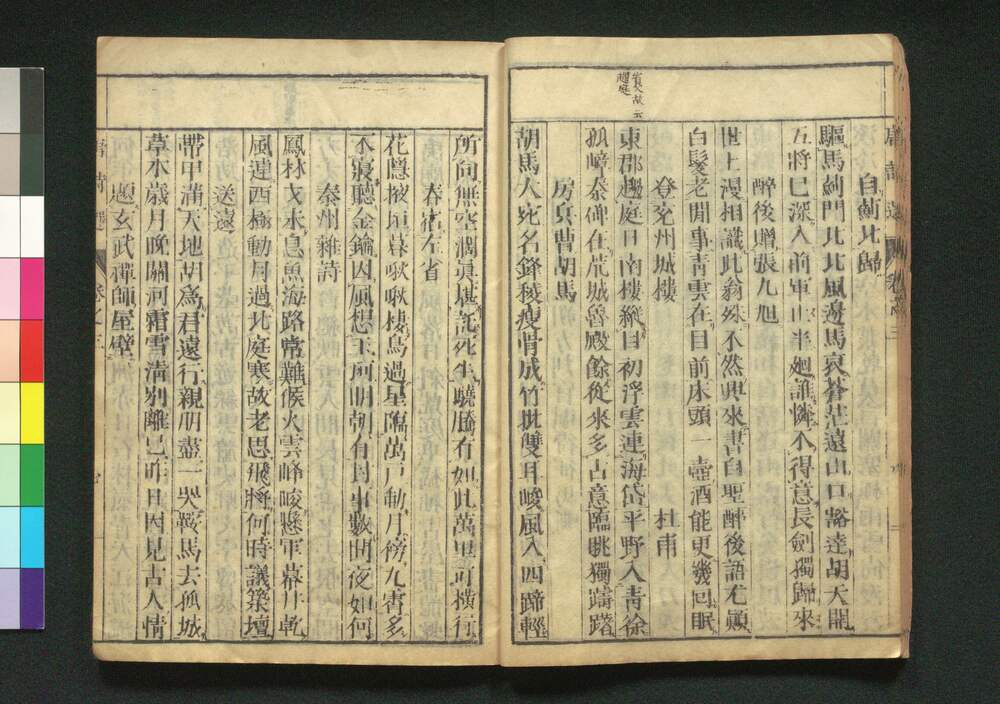 唐詩選 卷之三
自薊北歸
驅馬薊門北北風邊馬哀蒼茫遠山口豁達胡天開
五將已深入前軍止半廻誰憐不得意長劍獨歸來
醉後贈張九旭
世上漫相識此翁殊不然興來書自聖醉後語尤顛
白髮老閒事青雲在目前床頭一壺酒能更幾回眠
登兗州城樓 杜甫
省父故云
趨庭
東郡趨庭日南樓縱目初浮雲連海岱平野入青徐
孤嶂秦碑在荒城魯殿餘從來多古意臨眺獨躊躇
房兵曹胡馬
胡馬大宛名鋒稜瘦骨成竹批雙耳峻風入四蹄輕
所向無空濶眞堪託死生驍騰有如此萬里可橫行
春宿左省
花隱掖垣暮啾啾棲鳥過星臨萬戶動月傍九霄多
不寢聽金鑰因風想玉珂明朝有封事數問夜如何
秦州雜詩
鳳林戈未息魚海路常難候火雲峰峻懸軍幕井乾
風連西極動月過北庭寒故老思飛將何時議築壇
送遠
帶甲滿天地胡爲君遠行親朋盡一哭鞍馬去孤城
草木歲月晚關河霜雪清別離已昨日因見古人情
題玄武禪師屋壁
唐詩選 卷之三